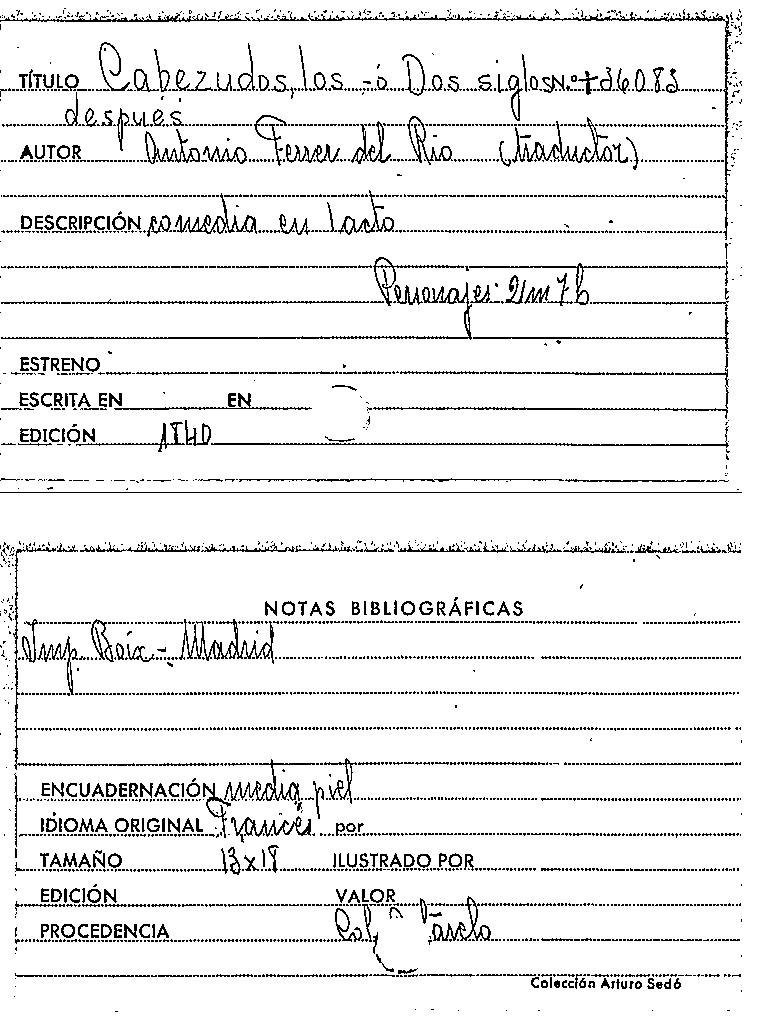 TÍTULO Cabezudos, los -ó Dos siglos N.º + 36083
después
AUTOR Antonio Ferrer del Rio (traductor)
DESCRIPCIÓN comedia en 1 acto
Personajes: 2/m 7h
ESTRENO
ESCRITA EN EN
EDICIÓN 1840
NOTAS BIBLIOGRÁFICAS
Imp. Boix - Madrid
ENCUADERNACIÓN media piel
IDIOMA ORIGINAL Francés por
TAMAÑO 13x18 ILUSTRADO POR
EDICIÓN VALOR
PROCEDENCIA Col.
Colección Arturo Sedó